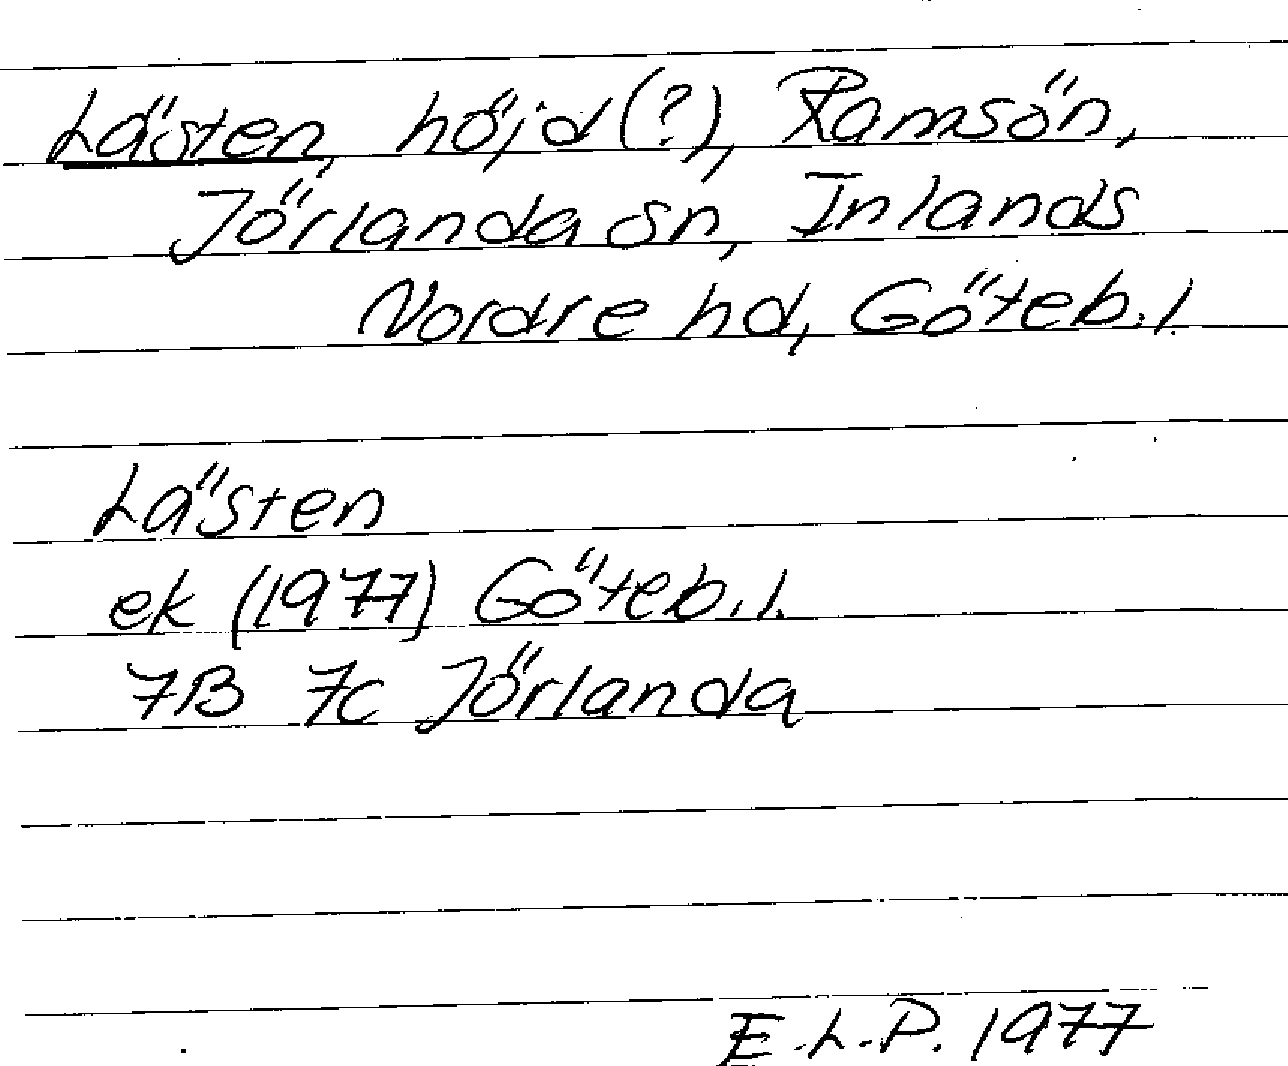 Lästen, höjd (?), Ramsön,
Jörlanda sn, Inlands
Nordre hd, Göteb.l.
Lästen
ek (1977) Göteb.l.
7B 7c Jörlanda
E.L.P. 1977